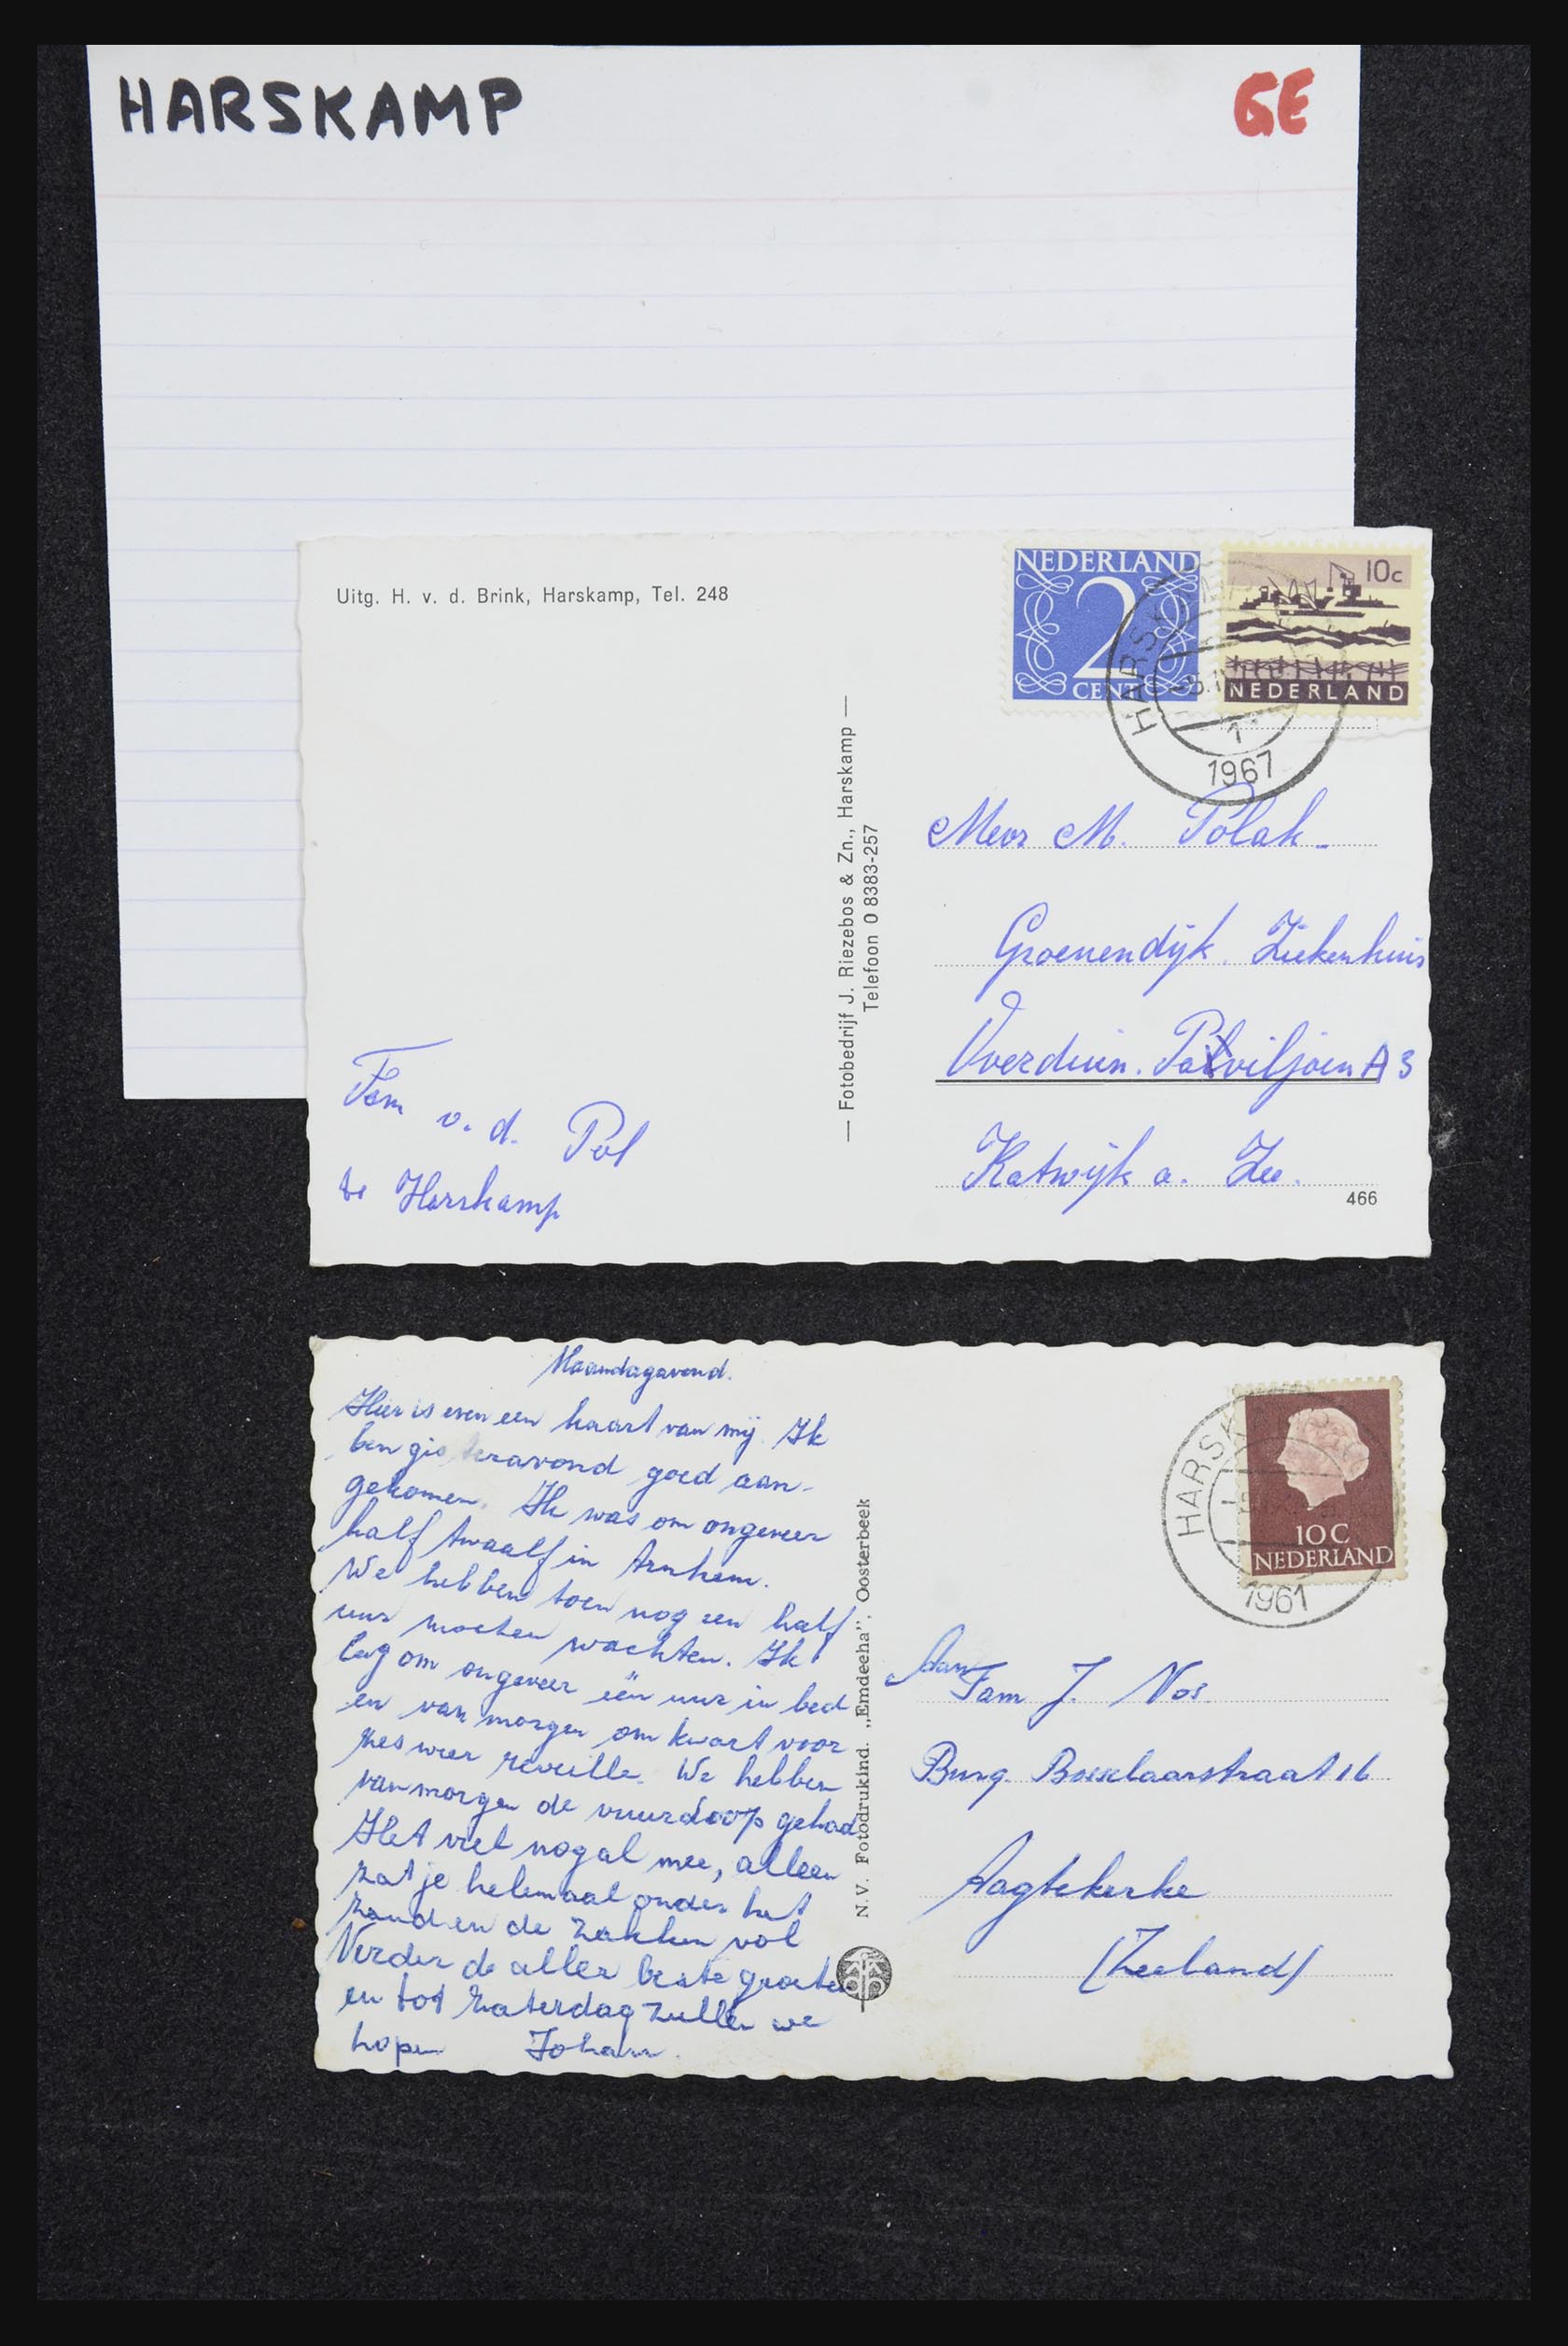 HARSKAMP
GE
Uitg. H. v. d. Brink, Harskamp, Tel. 248
NEDERLAND
2
CENT
10c
NEDERLAND
HARSK
1
1967
— Fotobedrijf J. Riezebos & Zn., Harskamp —
Telefoon 0 8383-257
Mevr M. Polak
Groenendijk. Ziekenhuis
Overduin. Paviljoen A 3
Katwijk a. Zee.
466
Fam
v. d. Pol
te Harskamp
Maandagavond.
Hier is even een kaart van mij. Ik
ben gisteravond goed aan-
gekomen. Ik was om ongeveer
half twaalf in Arnhem.
We hebben toen nog een half
uur moeten wachten. Ik
lag om ongeveer één uur in bed
en van morgen om kwart voor
zes weer reveille. We hebben
vanmorgen de vuurdoop gehad
Het viel nogal mee, alleen
zat je helemaal onder het
zand en de zakken vol
Verder de aller beste groeten
en tot zaterdag zullen we
hopen Johan.
N.V. Fotodrukind. „Emdeeha”, Oosterbeek
HARSK
10 C
NEDERLAND
1961
Aan
Fam J. Vos.
Burg. Bosselaarstraat 16
Aagtekerke
(Zeeland)